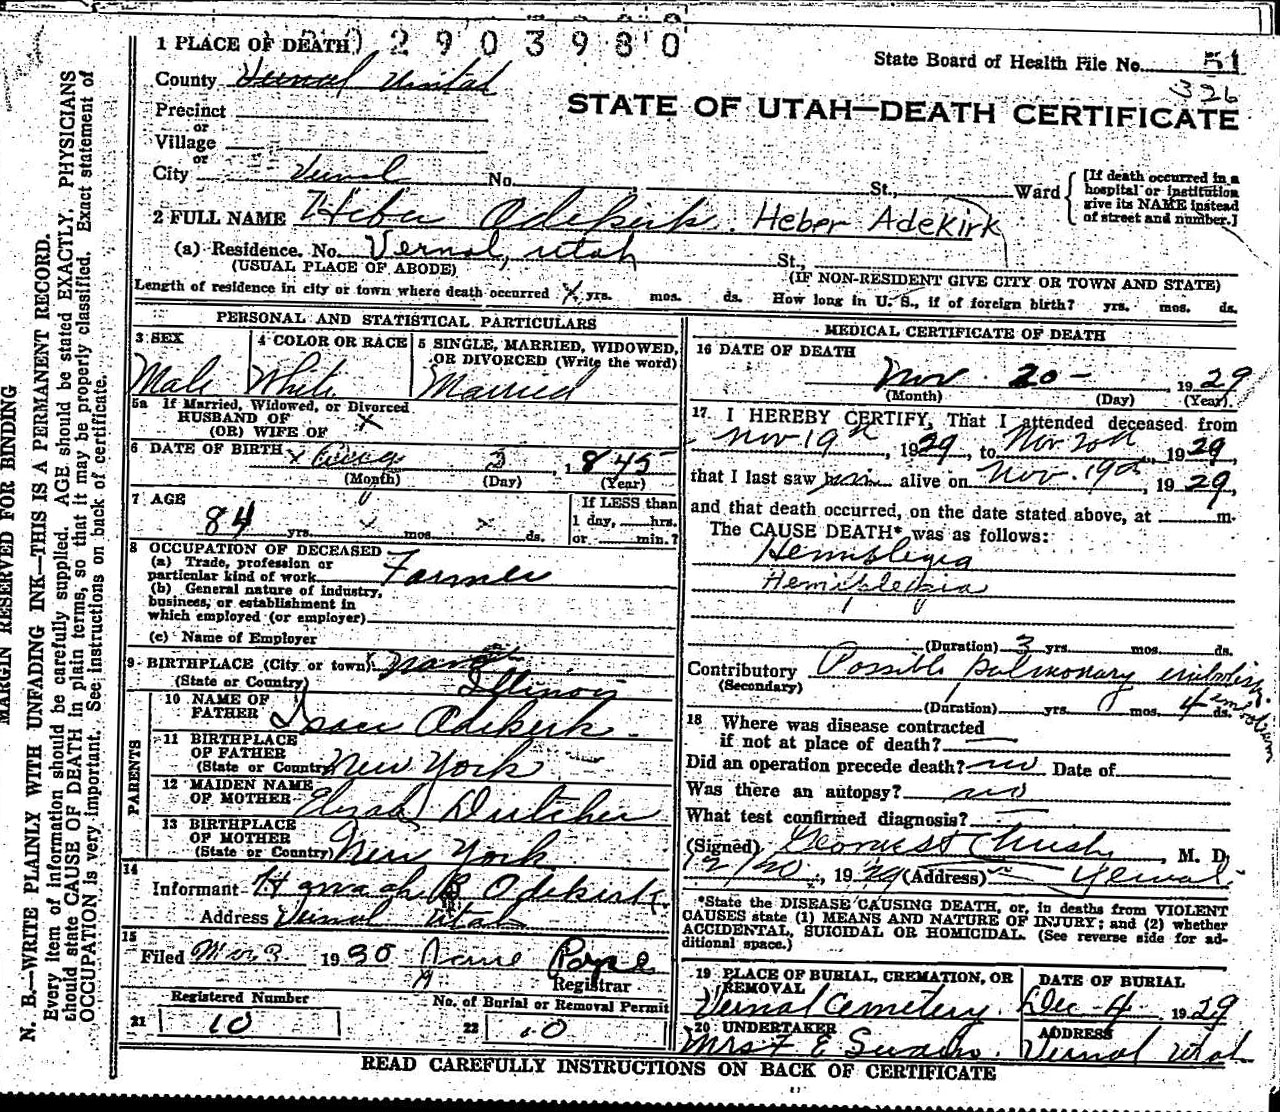 0 2 9 0 3 9 8 0
1 PLACE OF DEATH
State Board of Health File No. 51
326
County Vernal Uintah
STATE OF UTAH—DEATH CERTIFICATE
Precinct
or
Village
or
City Vernal No. St., Ward
[If death occurred in a hospital or institution give its NAME instead of street and number.]
2 FULL NAME Heber Adekirk. Heber Adekirk
(a) Residence. No. Vernal, Utah St.,
(USUAL PLACE OF ABODE) (IF NON-RESIDENT GIVE CITY OR TOWN AND STATE)
Length of residence in city or town where death occurred x yrs. mos. ds. How long in U. S., if of foreign birth? yrs. mos. ds.
PERSONAL AND STATISTICAL PARTICULARS
3 SEX Male
4 COLOR OR RACE White
5 SINGLE, MARRIED, WIDOWED, OR DIVORCED (Write the word) Married
5a If Married, Widowed, or Divorced
HUSBAND OF
(OR) WIFE OF x
6 DATE OF BIRTH x Aug 3, 1845
(Month) (Day) (Year)
7 AGE
84 yrs. x mos. x ds.
If LESS than
1 day, hrs.
or min.?
8 OCCUPATION OF DECEASED
(a) Trade, profession or
particular kind of work Farmer
(b) General nature of industry,
business, or establishment in
which employed (or employer)
(c) Name of Employer
9 BIRTHPLACE (City or town)
(State or Country) Illinois
PARENTS
10 NAME OF
FATHER Isaac Odekirk.
11 BIRTHPLACE
OF FATHER
(State or Country) New York
12 MAIDEN NAME
OF MOTHER Dutcher
13 BIRTHPLACE
OF MOTHER
(State or Country) New York
14
Informant Odekirk.
Address Vernal Utah
15
Filed Mar 3 1930
Registrar
Registered Number
21 10
No. of Burial or Removal Permit
22 10
MEDICAL CERTIFICATE OF DEATH
16 DATE OF DEATH
Nov. 20 - , 1929
(Month) (Day) (Year)
17 I HEREBY CERTIFY, That I attended deceased from
Nov 19th, 1929, to Nov 20th, 1929
that I last saw him alive on Nov. 19th, 1929,
and that death occurred, on the date stated above, at m.
The CAUSE DEATH* was as follows:
Hemiplegia
Hemiplegia
(Duration) 3 yrs. mos. ds.
Contributory Possible pulmonary embolism
(Secondary) embolism
(Duration) yrs. mos. 4 ds.
18 Where was disease contracted
if not at place of death?
Did an operation precede death? no Date of
Was there an autopsy? no
What test confirmed diagnosis?
(Signed) , M. D.
12/20, 1929 (Address) Vernal.
*State the DISEASE CAUSING DEATH, or, in deaths from VIOLENT
CAUSES state (1) MEANS AND NATURE OF INJURY; and (2) whether
ACCIDENTAL, SUICIDAL OR HOMICIDAL. (See reverse side for ad-
ditional space.)
19 PLACE OF BURIAL, CREMATION, OR
REMOVAL
Vernal Cemetery.
DATE OF BURIAL
Dec - 4 1929
20 UNDERTAKER
Mrs F E Swain.
ADDRESS
Vernal Utah
READ CAREFULLY INSTRUCTIONS ON BACK OF CERTIFICATE
MARGIN RESERVED FOR BINDING
N. B.—WRITE PLAINLY WITH UNFADING INK—THIS IS A PERMANENT RECORD.
Every item of information should be carefully supplied. AGE should be stated EXACTLY. PHYSICIANS
should state CAUSE OF DEATH in plain terms, so that it may be properly classified. Exact statement of
OCCUPATION is very important. See instructions on back of certificate.